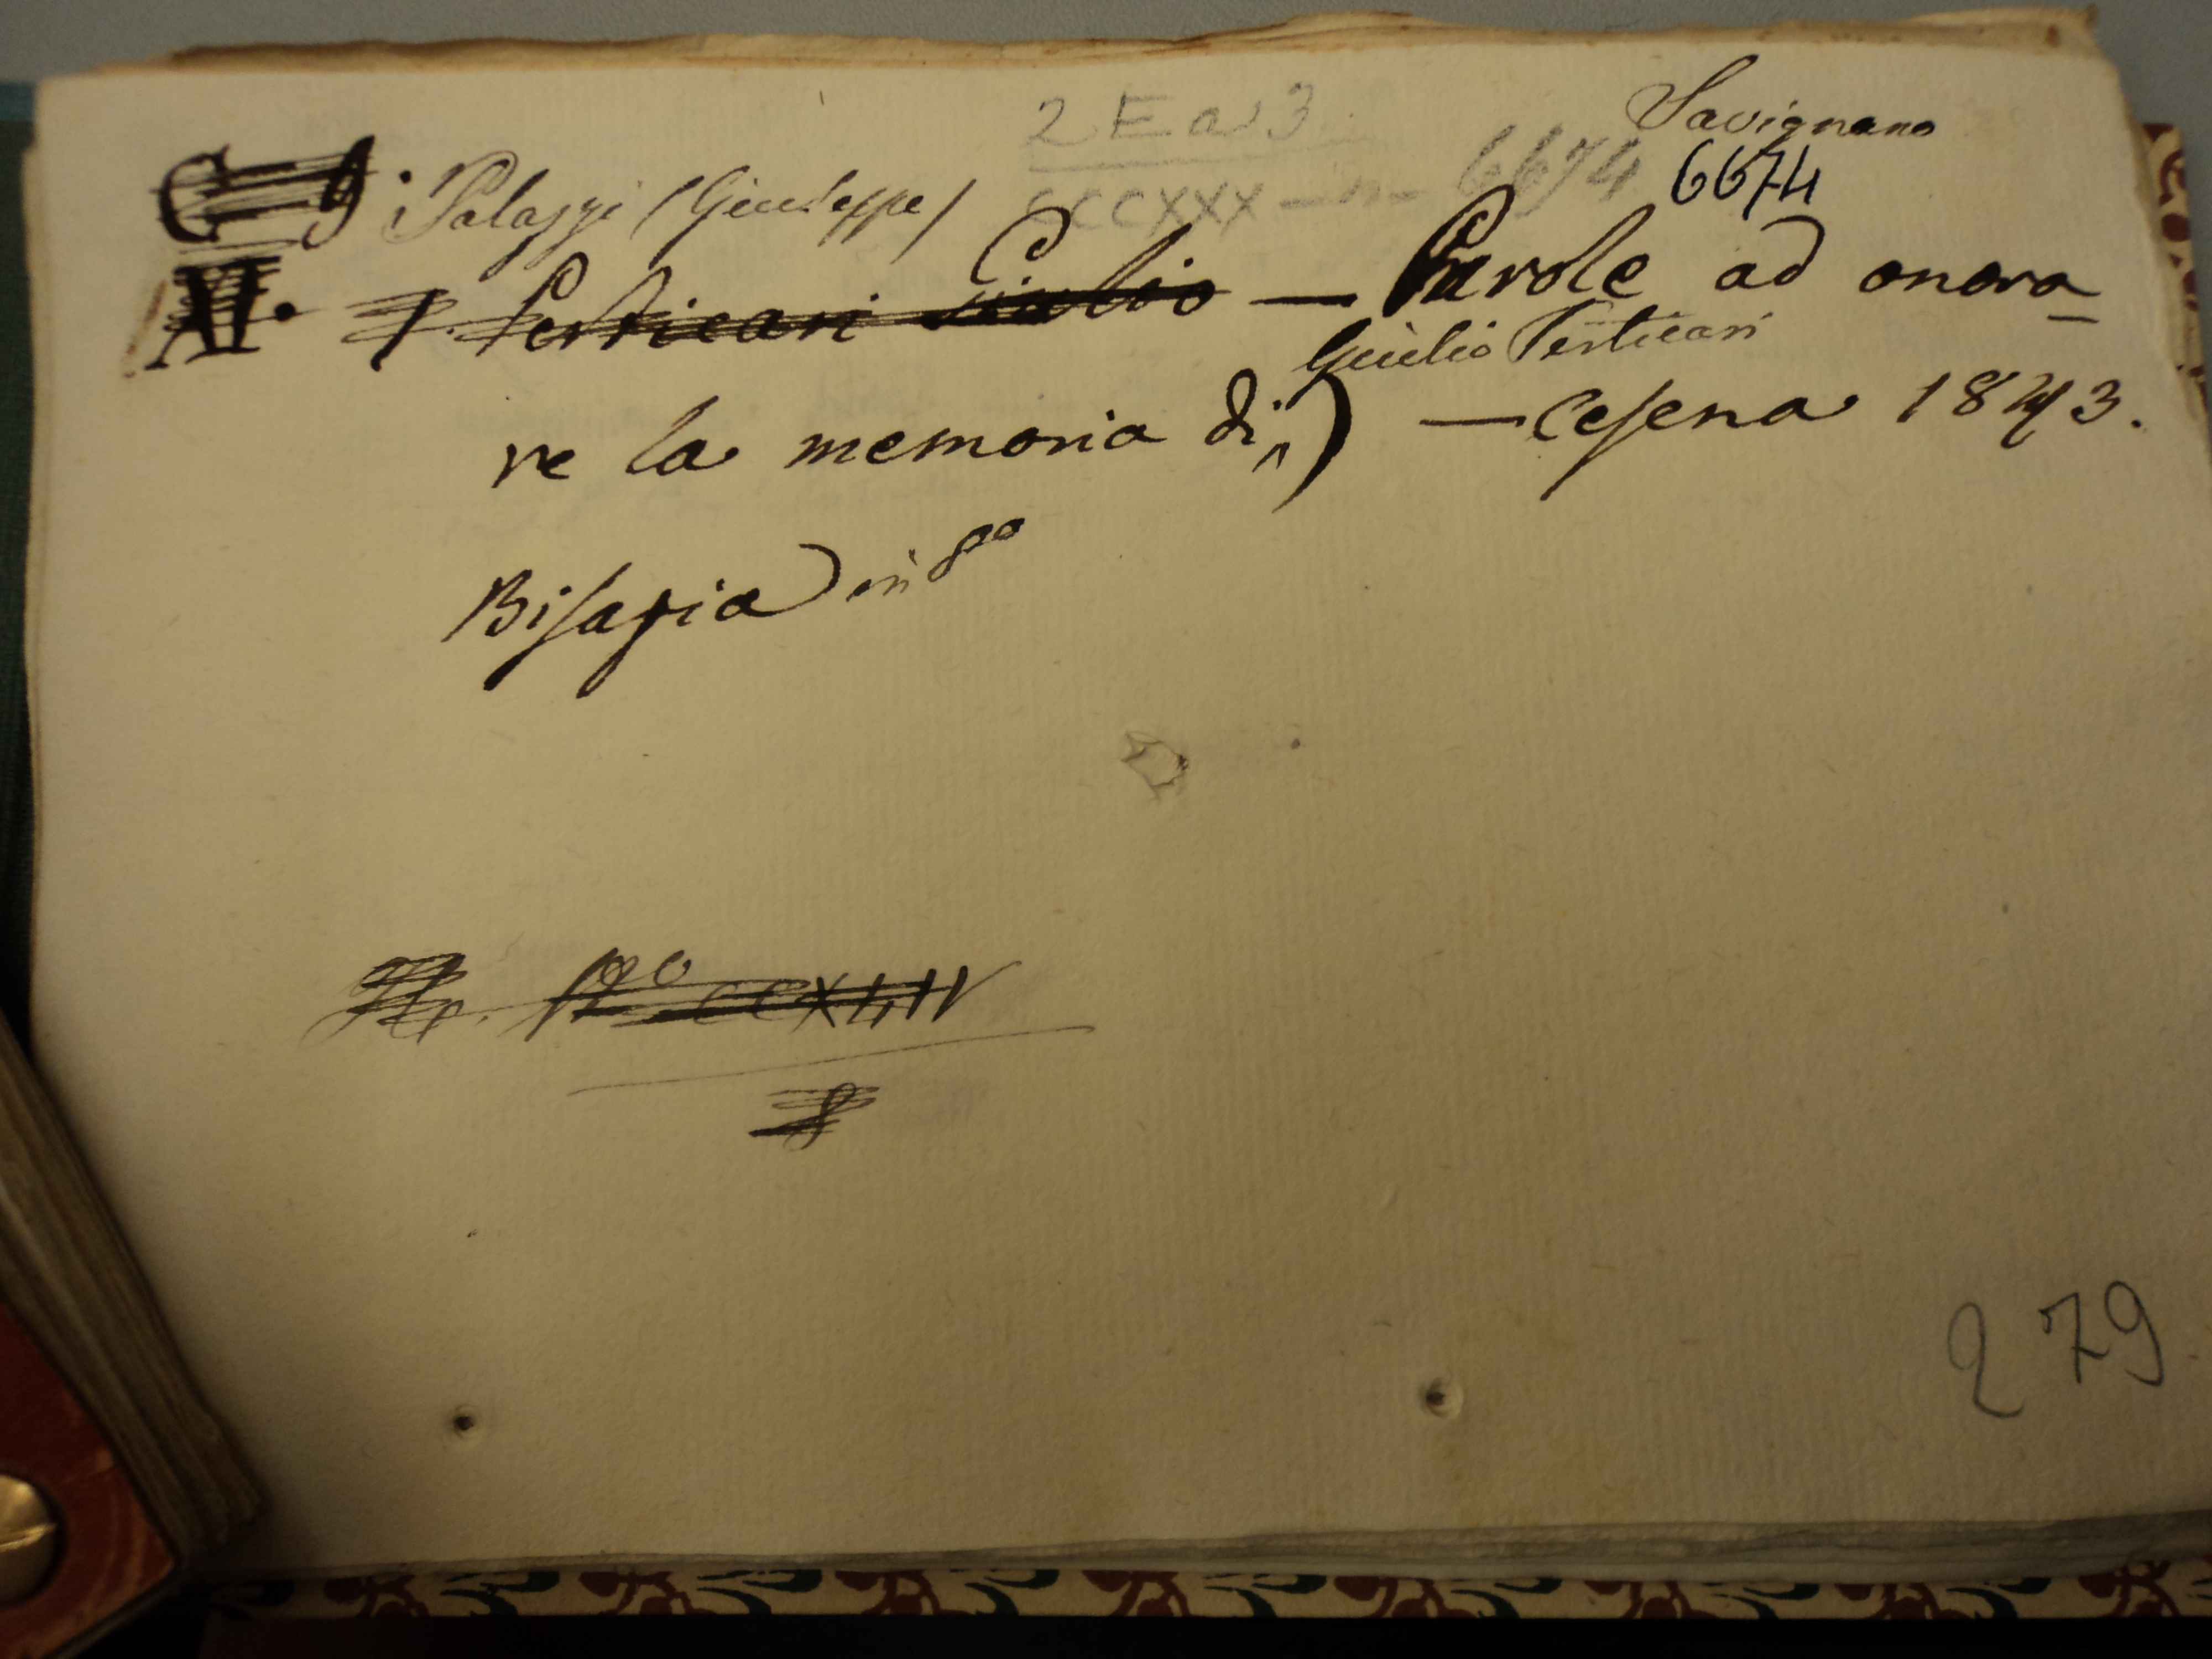 2 E a 3
Savignano
Palazzi (Giuseppe) CCCXXX — n- 6674 6674
Perticari Giulio — Parole ad onora
Giulio Perticari
re la memoria di) — Cesena 1843.
Bisazia in 8º
Nº CCXLIV
8
279